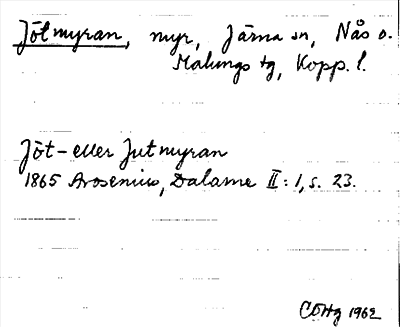 Jötmyran, myr, Järna sn, Nås o.
Malungs tg, Kopp. l.
Jöt- eller Jutmyran
1865 Arosenius, Dalarne II: 1, s. 23.
CÖHg 1962